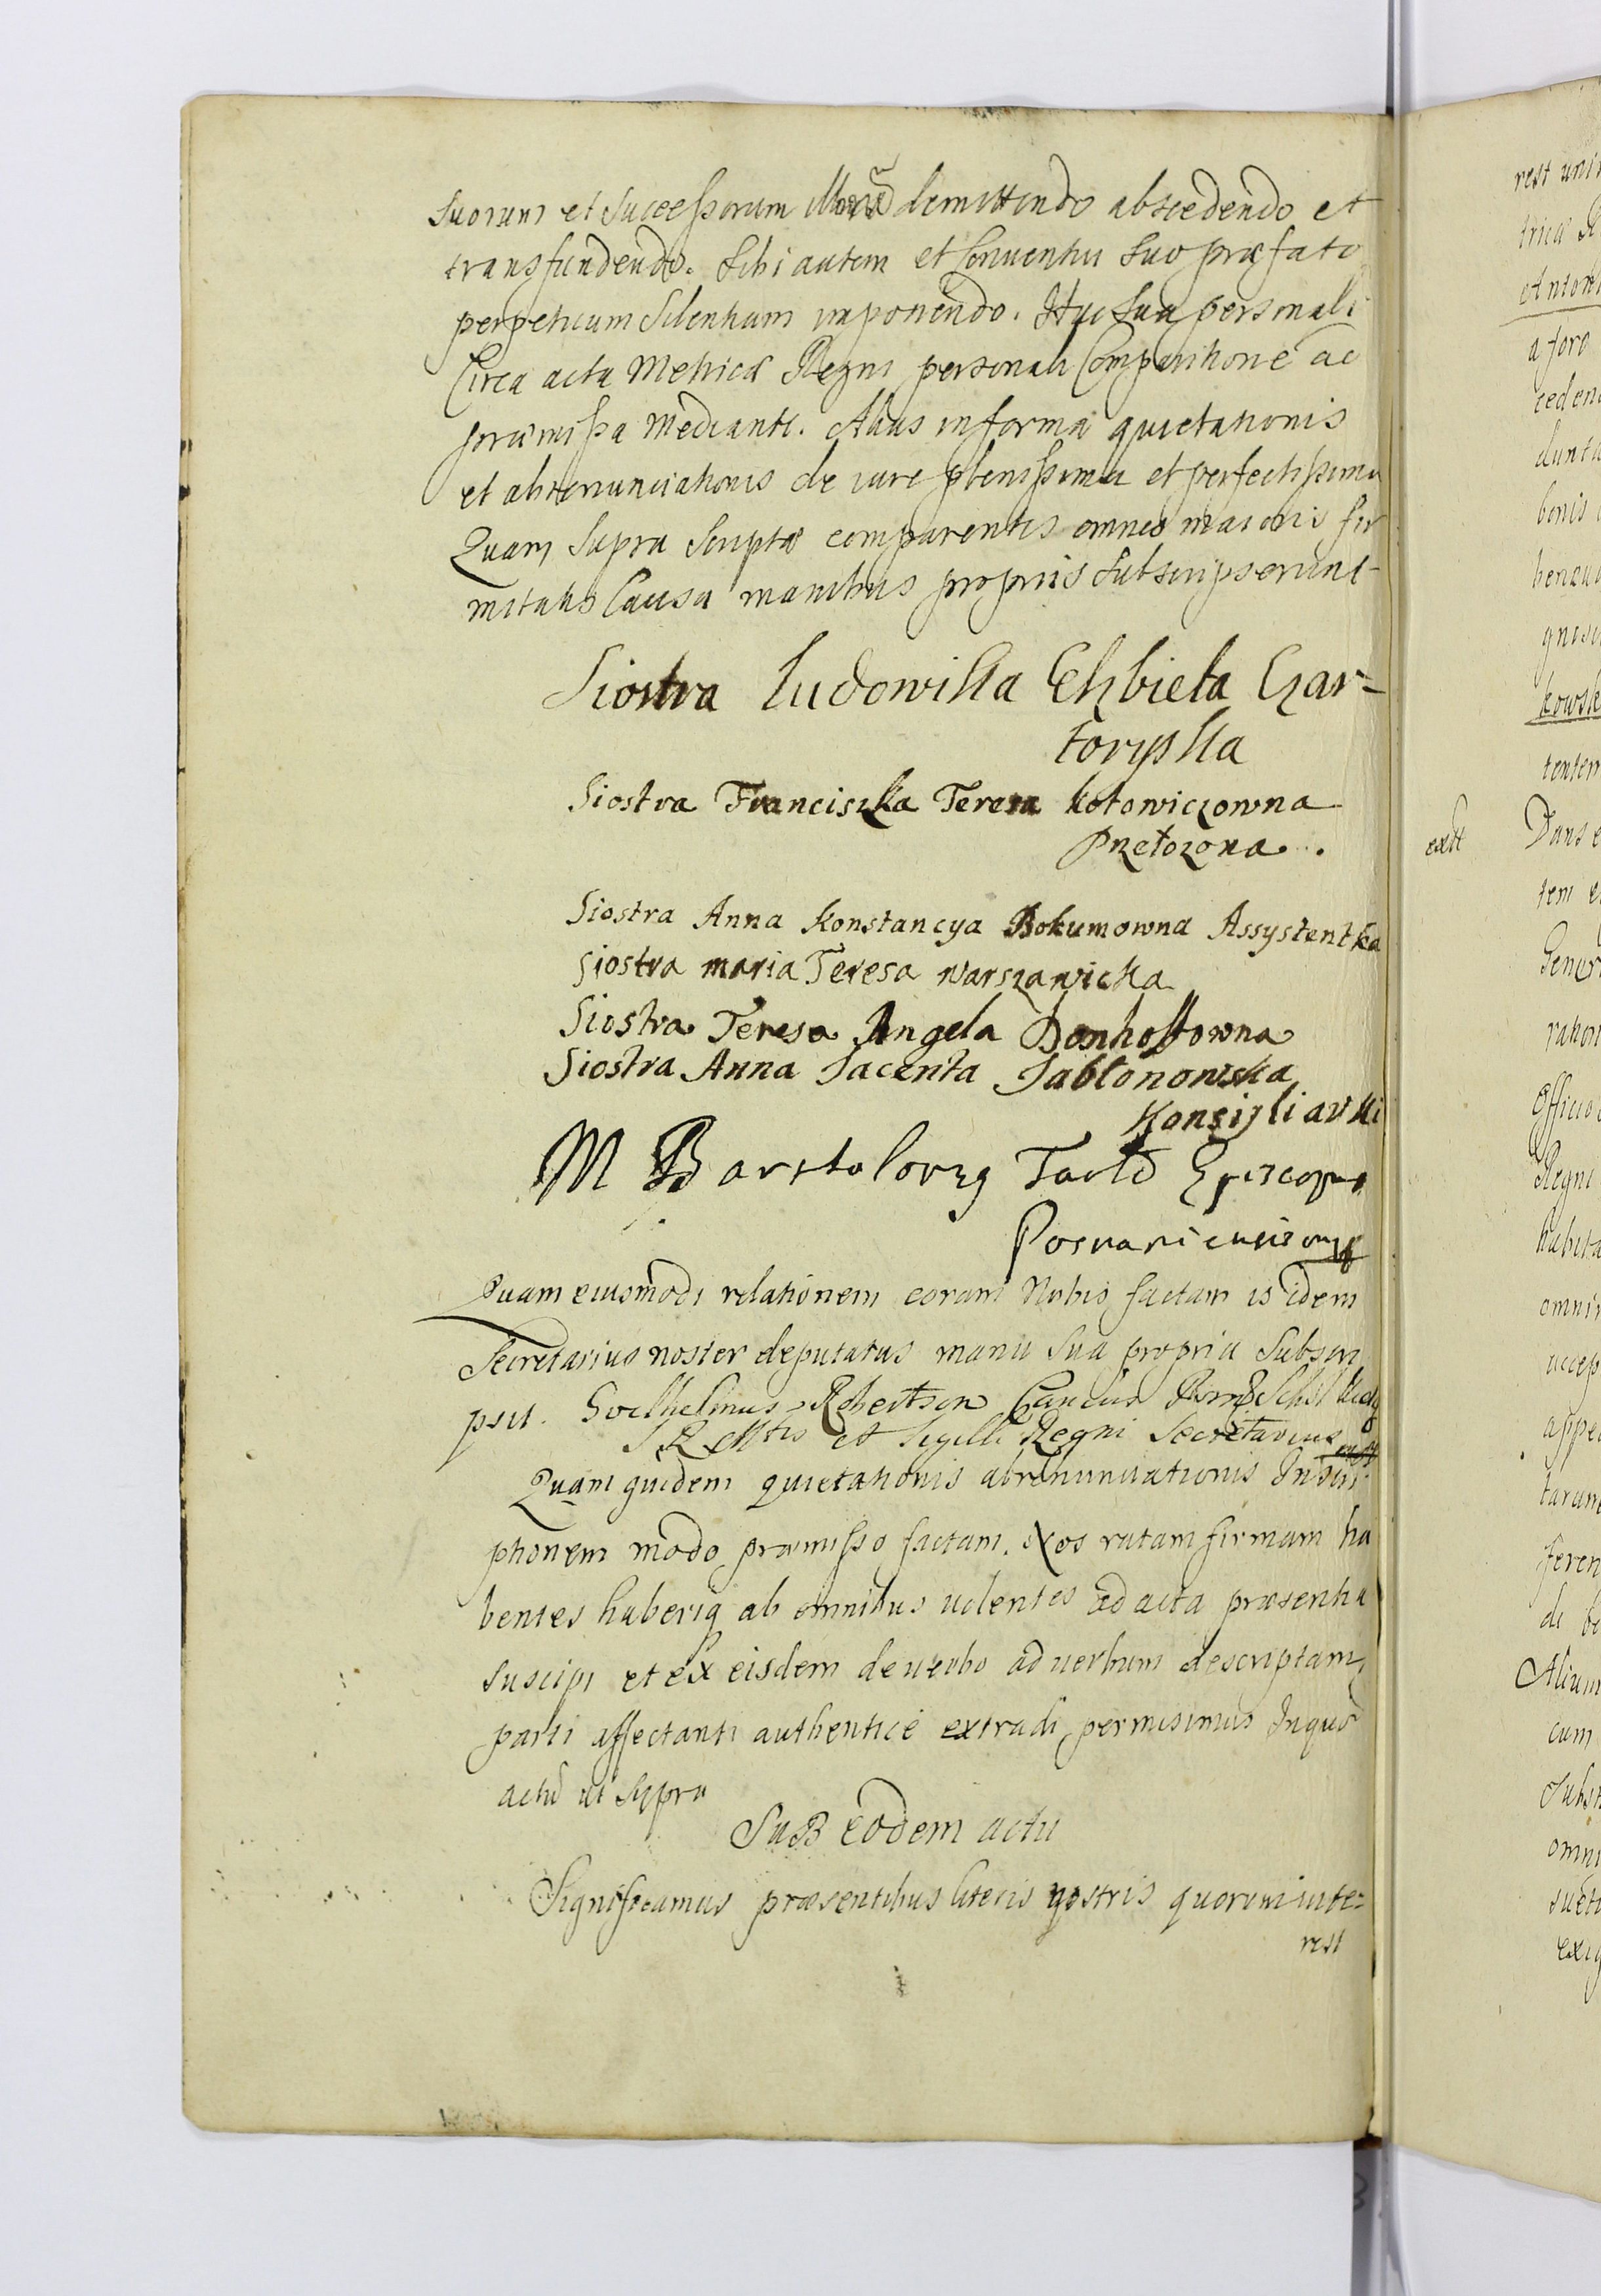 suorum et Successorum demittendo abscedendo et
transfundendo. Sibi autem et Conuentui Suo præfato
perpetuum Silentium imponendo. Hac Sua personali
Circa acta Metricæ Regni personali Comparitione ac
præmissa mediante. Alias in forma quietationis
et abrenunciationis de iure plenissima et perfectissima
Quam Supra Scriptæ comparentes omnes maioris fir
mitatis Causa manibus propriis Subscripserunt
Siostra Ludowika Elzbieta Czar=
toryska
Siostra Franciszka Teresa Kotowiczowna
Przełozona.
Siostra Anna Konstancya Bokumowna Assystentka
Siostra maria Teresa warszawicka
Siostra Teresa Angela Donhoffowna
Siostra Anna Jacenta Jabłonowska
Konsyliarki
M Bartolomy Tarło Episcopus
Posnaniensis mp
Quam eiusmodi relationem coram Nobis factam is idem
Secretarius noster deputatus manu Sua propria Subscri
psit. Guilhelmus Robertson
S R Mtis et Sigilli Regni Secretarius mp
Quam quidem quietationis abrenunciationis Inscri
ptionem modo præmisso factam. Nos ratam firmam ha
bentes haberiq ab omnibus uolentes ad acta præsentia
suscipi et ex eisdem de uerbo ad uerbum descriptam
parti affectanti authentice extradi permisimus Inquor
actu ut Supra
SuB eodem actu
Significamus præsentibus literis nostris quorum inte=
rest
rest
Dans
tem
Regni
omni
accep
appe
feren
Alium
cum
omni